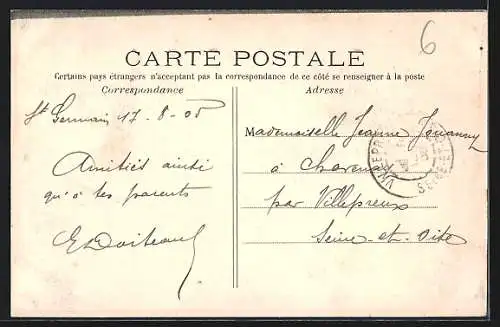 6
CARTE POSTALE
Certains pays étrangers n'acceptant pas la correspondance de ce côté se renseigner à la poste
Correspondance
Adresse
St Germain 17-8-05
Amitiés ainsi
qu'à tes parents
Mademoiselle Jeanne
à
par Villepreux
Seine-et-Oise